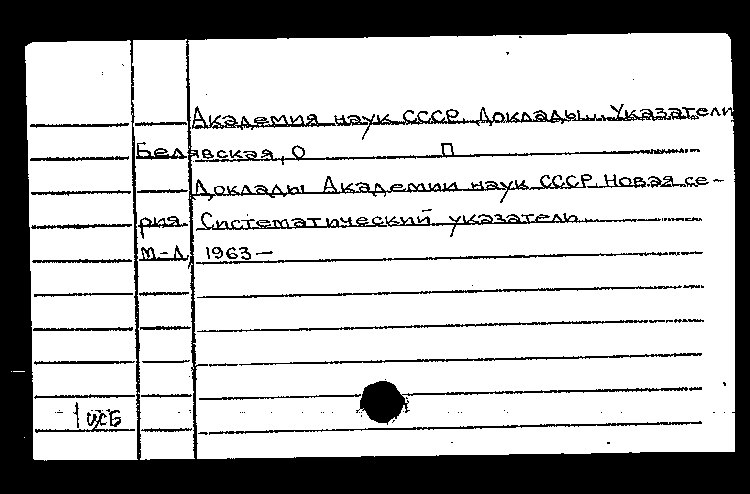 Академия наук СССР. Доклады... Указатели
Белявская, О П
Доклады Академии наук СССР. Новая се-
рия. Систематический указатели
М-Л, 1963—